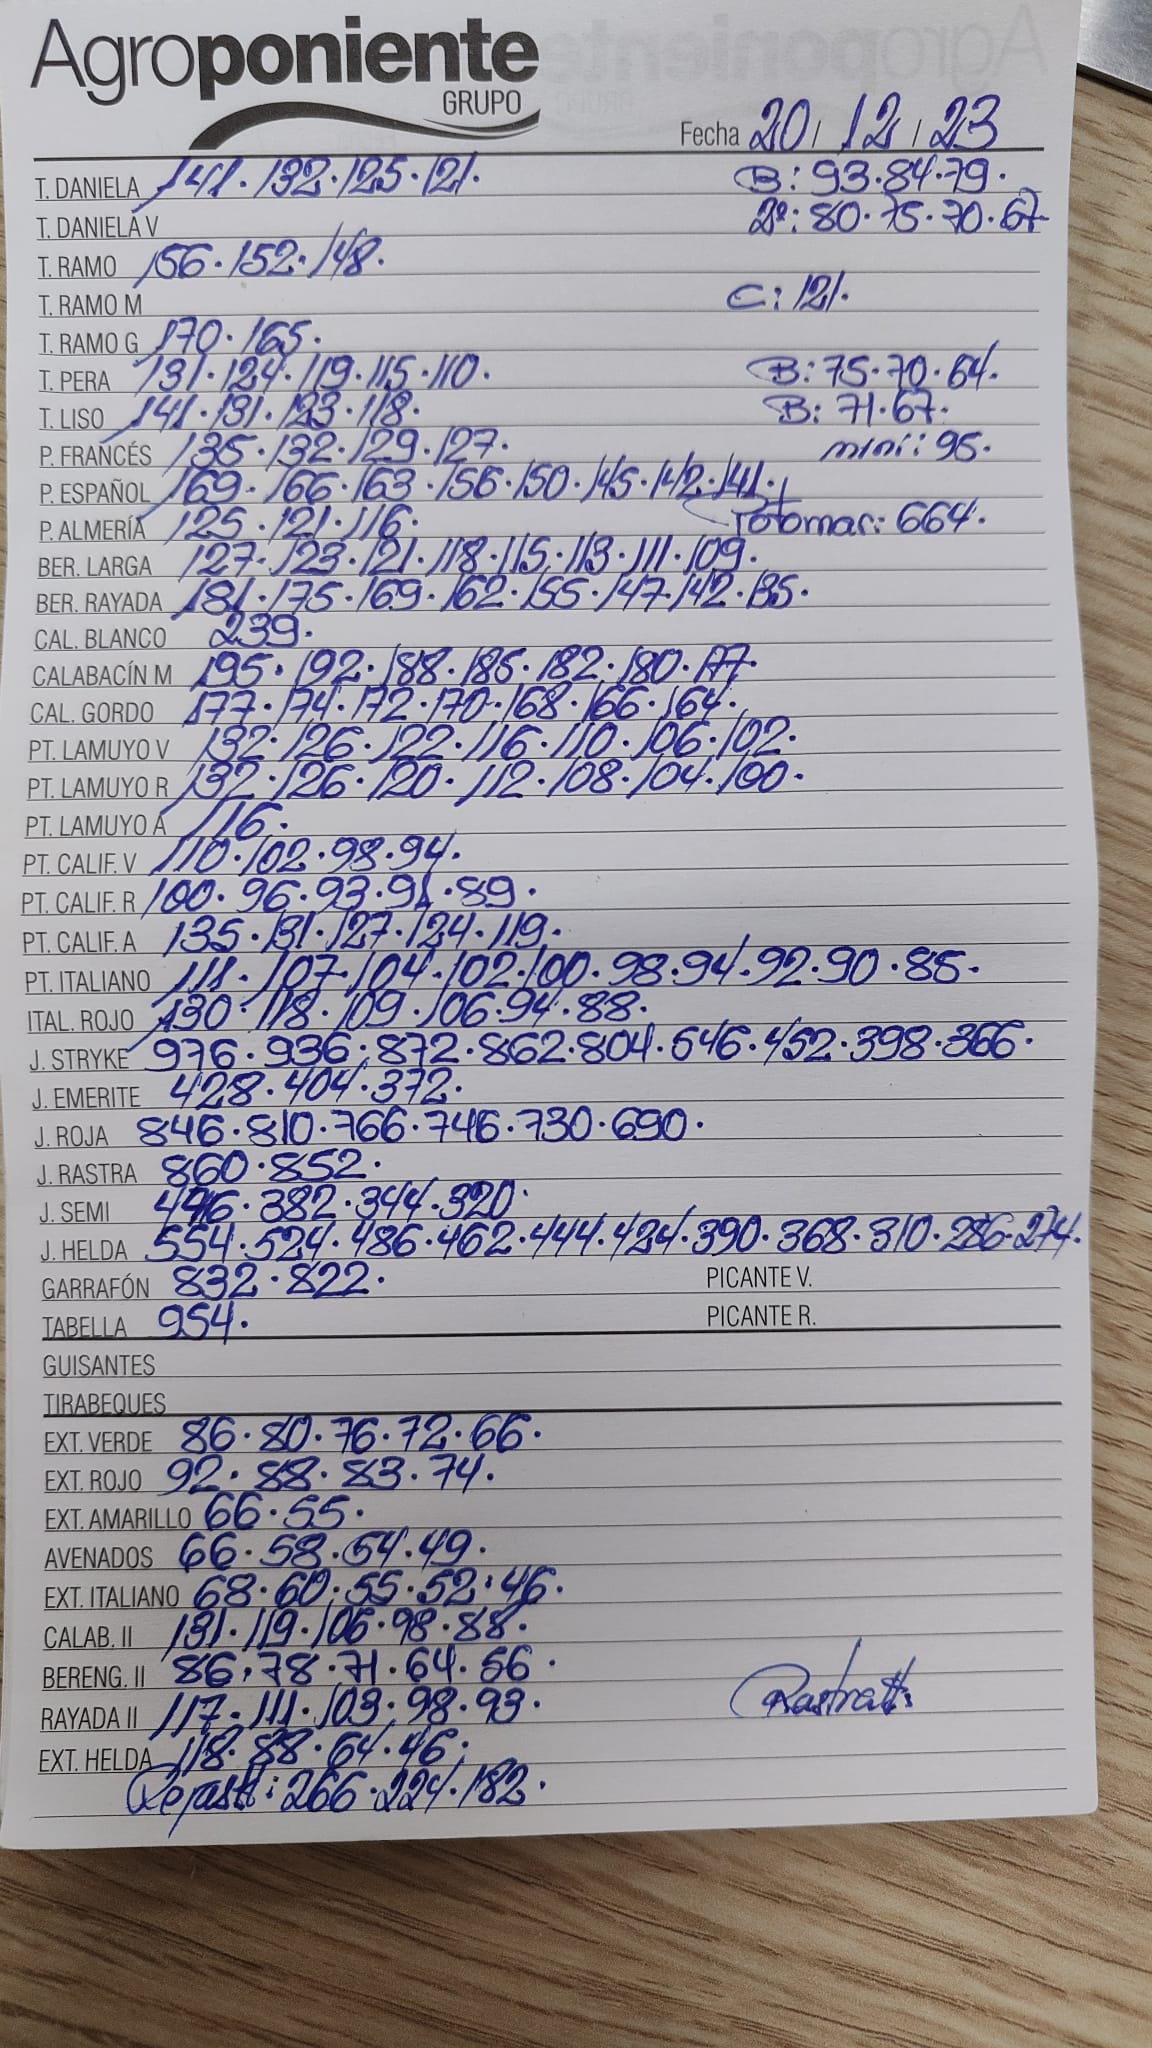 Agroponiente
GRUPO
Fecha 20 / 12 / 23
T. DANELA 141. 132. 125. 121. B: 93. 84. 79.
T. DANIELA V 2ª: 80. 75. 70. 67
T. RAMO 156. 152. 148.
T. RAMO M C: 121.
T. RAMO G 170. 165.
T. PERA 131. 124. 119. 115. 110. B: 75. 70. 64.
T. LISO 141. 131. 123. 118. B: 71. 67.
P. FRANCÉS 135. 132. 129. 127. mini: 95.
P. ESPAÑOL 169. 166. 163. 156. 150. 145. 142. 141.
P. ALMERÍA 125. 121. 116. 664.
BER. LARGA 127. 123. 121. 118. 115. 113. 111. 109.
BER. RAYADA 181. 175. 169. 162. 155. 147. 142. 135.
CAL. BLANCO 239.
CALABACÍN M 195. 192. 188. 185. 182. 180. 177.
CAL. GORDO 177. 174. 172. 170. 168. 166. 164.
PT. LAMUYO V 132. 126. 122. 116. 110. 106. 102.
PT. LAMUYO R 132. 126. 120. 112. 108. 104. 100.
PT. LAMUYO A 116.
PT. CALIF. V 110. 102. 98. 94.
PT. CALIF. R 100. 96. 93. 91. 89.
PT. CALIF. A 135. 131. 127. 124. 119.
PT. ITALIANO 111. 107. 104. 102. 100. 98. 94. 92. 90. 85.
ITAL. ROJO 130. 118. 109. 106. 94. 88.
J. STRYKE 976. 936. 872. 862. 804. 546. 452. 398. 366.
J. EMERITE 428. 404. 372.
J. ROJA 846. 810. 766. 746. 730. 690.
J. RASTRA 860. 852.
J. SEMI 382. 344. 320.
J. HELDA 554. 524. 486. 462. 444. 424. 390. 368. 310. 286. 274.
GARRAFÓN 832. 822. PICANTE V.
TABELLA 954. PICANTE R.
GUISANTES
TIRABEQUES
EXT. VERDE 86. 80. 76. 72. 66.
EXT. ROJO 92. 88. 83. 74.
EXT. AMARILLO 66. 55.
AVENADOS 66. 58. 54. 49.
EXT. ITALIANO 68. 60. 55. 52. 46.
CALAB. II 131. 119. 106. 98. 88.
BERENG. II 86. 78. 71. 64. 56.
RAYADA II 117. 111. 103. 98. 93.
EXT. HELDA 118. 88. 64. 46.
266. 224. 182.